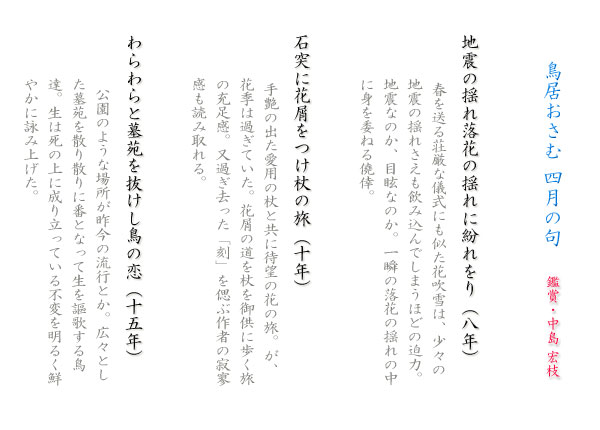 鳥居おさむ 四月の句
鑑賞・中島 宏枝
地震の揺れ落花の揺れに紛れをり（八年）
春を送る荘厳な儀式にも似た花吹雪は、少々の
地震の揺れさえも飲み込んでしまうほどの迫力。
地震なのか、目眩なのか。一瞬の落花の揺れの中
に身を委ねる僥倖。
石突に花屑をつけ杖の旅（十年）
手艶の出た愛用の杖と共に待望の花の旅。が、
花季は過ぎていた。花屑の道を杖を御供に歩く旅
の充足感。又過ぎ去った「刻」を偲ぶ作者の寂寥
感も読み取れる。
わらわらと墓苑を抜けし鳥の恋（十五年）
公園のような場所が昨今の流行とか。広々とし
た墓苑を散り散りに番となって生を謳歌する鳥
達。生は死の上に成り立っている不変を明るく鮮
やかに詠み上げた。